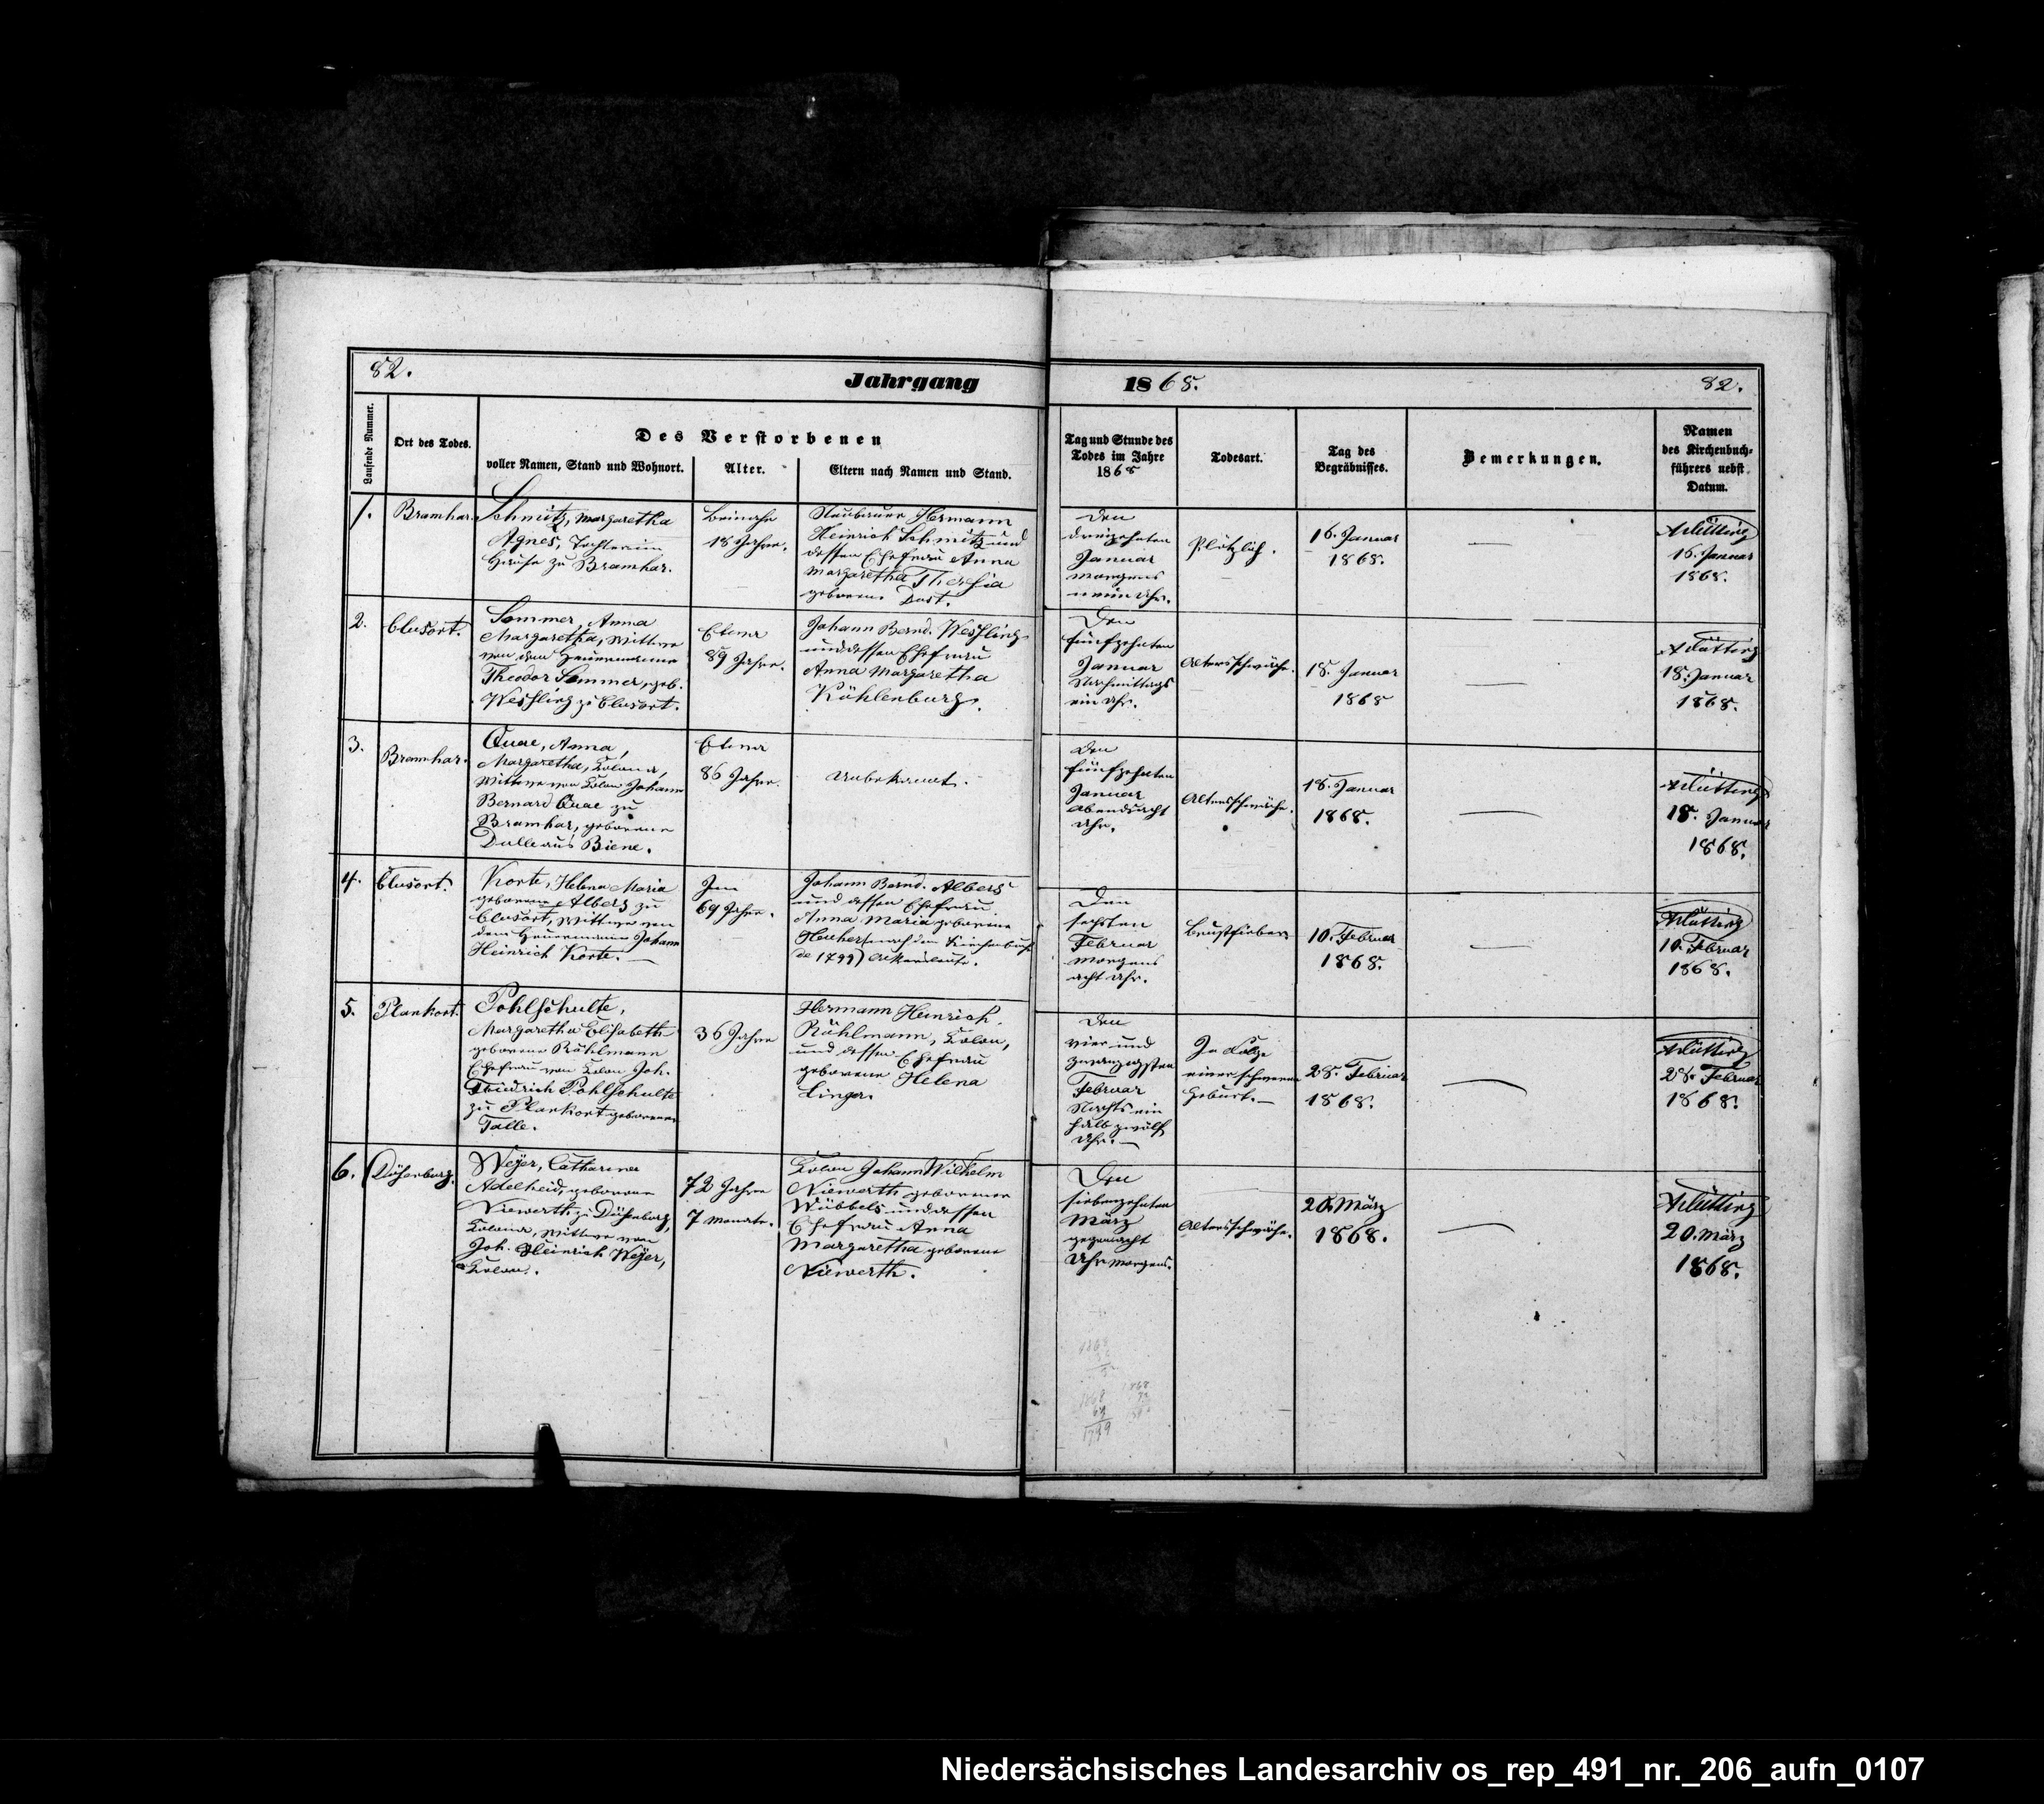 82.
Jahrgang
1868.
82.
Laufende Nummer.
Ort des Todes.
Des Verstorbenen
voller Namen, Stand und Wohnort.
Alter.
Eltern nach Namen und Stand.
Tag und Stunde des
Todes im Jahre
1868
Todesart.
Tag des
Begräbnisses.
Bemerkungen.
Namen
des Kirchenbuch-
führers nebst
Datum.
1.
Bramhar.
Schmitz, Margaretha
Agnes, Tochter im
Hause zu Bramhar.
Beinahe
18 Jahre.
Neubauer Hermann
Heinrich Schmitz und
dessen Ehefrau Anna
Margaretha Thersia
geboren. Dast.
Den
dreizehnten
Januar
morgens
neun Uhr.
Plötzlich.
16. Januar
1868.
16. Januar
1868.
2.
Clusort.
Sommer, Anna
Margaretha, Wittwe
von dem Heuermann
Theodor Sommer, geb.
Wessling zu Clusort.
Etwa
89 Jahre.
Johann Bernd. Wessling
und dessen Ehefrau
Anna Margaretha
Kühlenburg.
Den
fünfzehnten
Januar
Nachmittags
ein Uhr.
Altersschwäche.
18. Januar
1868
18. Januar
1868.
3.
Bramhar.
Quae, Anna,
Margaretha, Colona,
Wittwe von Colon Johann
Bernard Quae zu
Bramhar, geborene
Dulle aus Biene.
Etwa
86 Jahre.
Unbekannt.
Den
fünfzehnten
Januar
abends acht
Uhr.
Altersschwäche.
18. Januar
1868.
18. Januar
1868.
4.
Clusort.
Korte, Helena Maria
geborene Albers zu
Clusort, Wittwe von
dem Heuermann Johann
Heinrich Korte.
Im
69 Jahre.
Johann Bernd. Albers
und dessen Ehefrau
Anna Maria geborene
nach dem Kirchenbuch
de 1799) Ackersleute.
Den
sechsten
Februar
morgens
acht Uhr.
Brustfieber
10. Februar
1868.
10. Februar
1868.
5.
Plankort.
Pohlschulte,
Margaretha Elisabeth
geborene Rühlmann
Ehefrau von Colon Joh.
Friedrich Pohlschulte
zu Plankort geborenen
Talle.
36 Jahre
Hermann Heinrich
Rühlmann, Colon,
und dessen Ehefrau
geborene Helena
Linger.
Den
vier und
zwanzigsten
Februar
Nachts ein
halb zwölf
Uhr.
In Folge
einer schweren
Geburt.
28. Februar
1868.
28. Februar
1868.
6.
Düsenburg.
Weÿer, Catharina
Adelheid, geborene
Niewerth zu Düsenburg,
Colona, Wittwe von
Joh. Heinrich Weÿer,
Colon.
72 Jahre
7 Monate.
Colon Johann Wilhelm
Niewerth geborener
Wübbels und dessen
Ehefrau Anna
Margaretha geborene
Niewerth.
Den
siebenzehnten
März
gegen acht
Uhr morgens.
Altersschwäche.
20. März
1868.
20. März
1868.
Niedersächsisches Landesarchiv os_rep_491_nr._206_aufn_0107